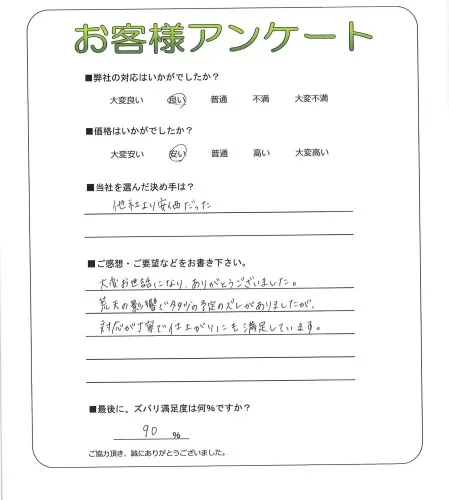 お客様アンケート
■弊社の対応はいかがでしたか？
大変良い 良い 普通 不満 大変不満
■価格はいかがでしたか？
大変安い 安い 普通 高い 大変高い
■当社を選んだ決め手は？
他社より安価だった
■ご感想・ご要望などをお書き下さい。
大変お世話になり、ありがとうございました。
荒天の影響で多少の予定のズレがありましたが、
対応が丁寧で仕上がりにも満足しています。
■最後に、ズバリ満足度は何%ですか？
90 %
ご協力頂き、誠にありがとうございました。